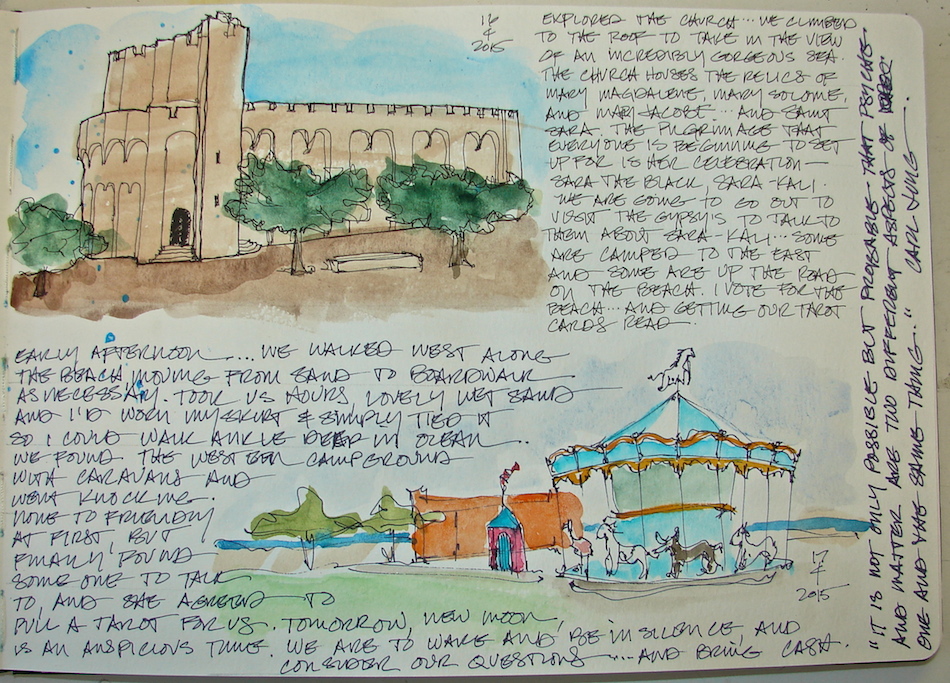 16
4
2015
EXPLORED THE CHURCH... WE CLIMBED
TO THE ROOF TO TAKE IN THE VIEW
OF AN INCREDIBLY GORGEOUS SEA.
THE CHURCH HOUSES THE RELICS OF
MARY MAGDALENE, MARY SOLOME,
AND MARY JACOBE... AND SAINT
SARA. THE PILGRIMAGE THAT
EVERYONE IS BEGINNING TO SET
UP FOR IS HER CELEBRATION—
SARA THE BLACK, SARA-KALI.
WE ARE GOING TO GO OUT TO
VISIT THE GYPSYIS TO TALK TO
THEM ABOUT SARA-KALI... SOME
ARE CAMPED TO THE EAST
AND SOME ARE UP THE ROAD
ON THE BEACH. I VOTE FOR THE
BEACH... AND GETTING OUR TAROT
CARDS READ.
EARLY AFTERNOON.... WE WALKED WEST ALONG
THE BEACH, MOVING FROM SAND TO BOARDWALK
AS NECESSARY. TOOK US HOURS, LOVELY WET SAND
AND I'D WORN MY SKIRT & SIMPLY TIED IT
SO I COULD WALK ANKLE DEEP IN OCEAN..
WE FOUND THE WESTERN CAMPGROUND
WITH CARAVANS AND
WENT KNOCKING.
NONE TO FRIENDLY
AT FIRST, BUT
FINALLY FOUND
SOMEONE TO TALK
TO, AND SHE AGREED TO
PULL A TAROT FOR US. TOMORROW, NEW MOON,
IS AN AUSPICIOUS TIME. WE ARE TO WAKE AND BE IN SILENCE, AND
CONSIDER OUR QUESTIONS ....AND BRING CASH.
17
4
2015
"IT IS NOT ONLY POSSIBLE BUT PROBABLE THAT PSYCHE
AND MATTER ARE TWO DIFFERENT ASPECTS OF
ONE AND THE SAME THING." CARL JUNG